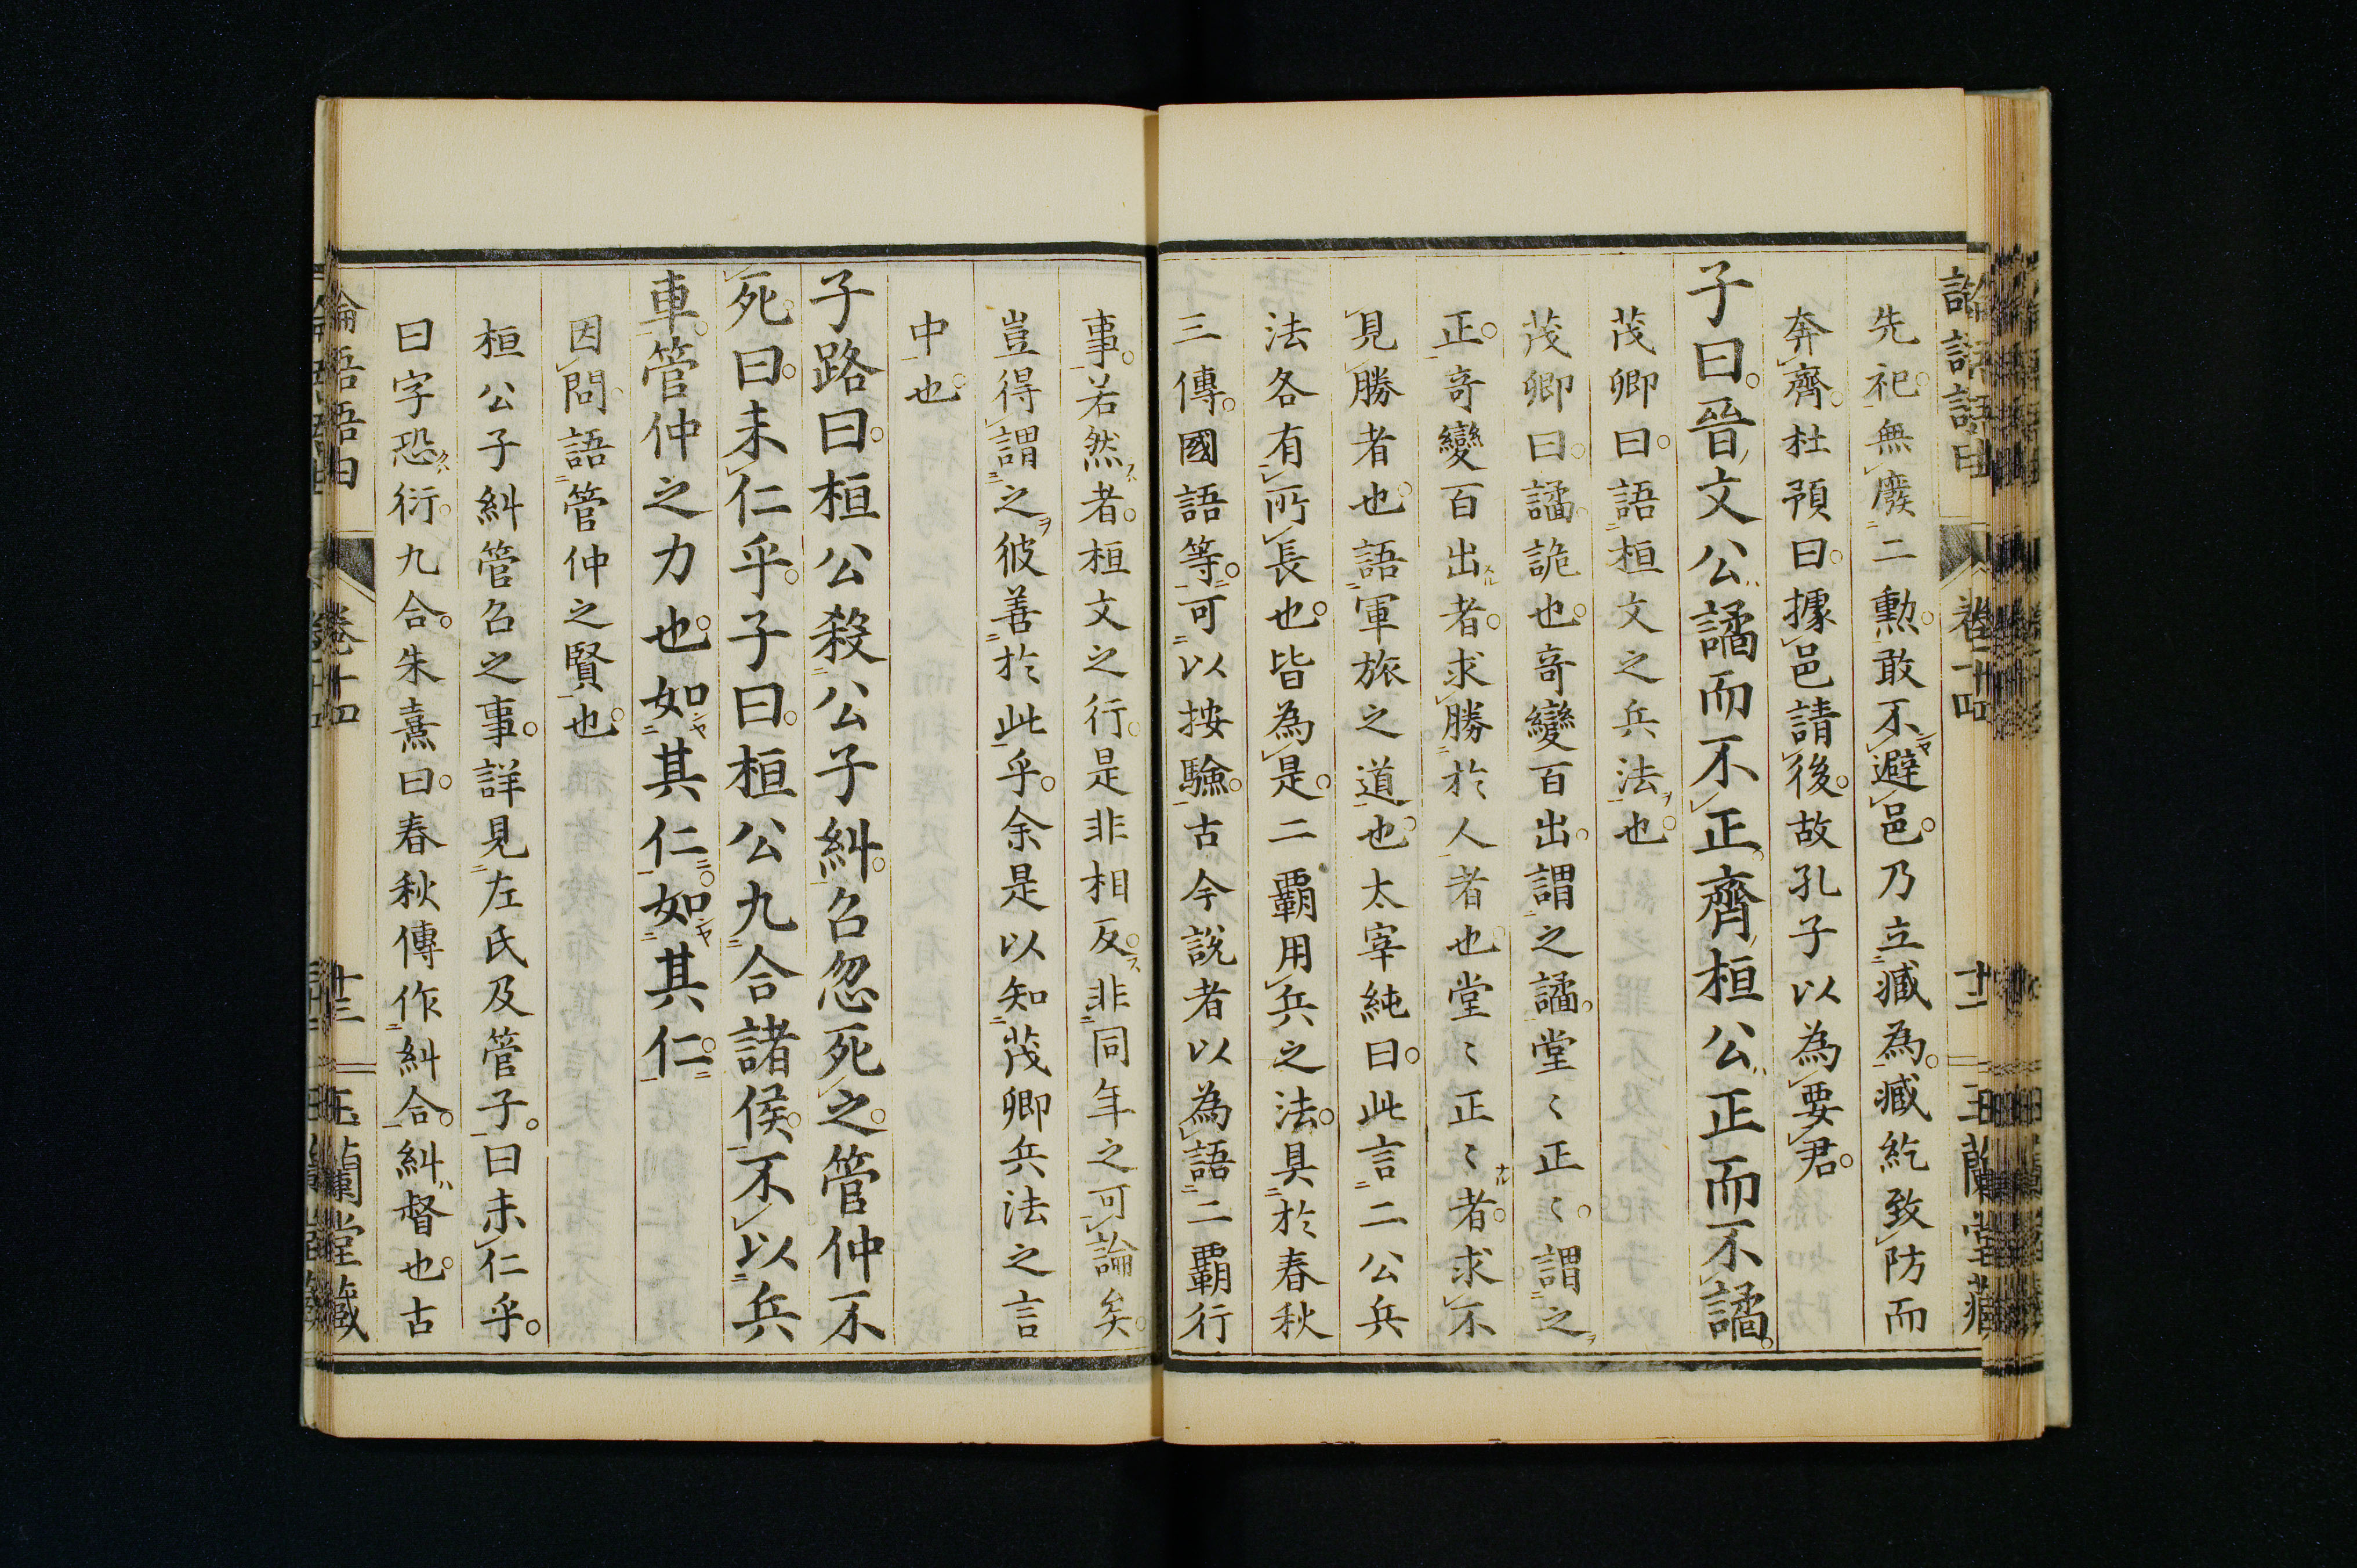 先祀無廢二勲敢不避邑乃立臧為臧紇致防而
奔齊杜預曰據邑請後故孔子以為要君
子曰晉文公譎而不正齊桓公正而不譎
茂卿曰語桓文之兵法也
茂卿曰譎詭也奇變百出謂之譎堂〻正〻謂之
正奇變百出者求勝於人者也堂〻正〻者求不
見勝者也語軍旅之道也太宰純曰此言二公兵
法各有所長也皆為是二覇用兵之法具於春秋
三傳國語等可以按驗古今說者以為語二覇行
事若然者桓文之行是非相反非同年之可論矣
豈得謂之彼善於此乎余是以知茂卿兵法之言
中也
子路曰桓公殺公子糾召忽死之管仲不
死曰未仁乎子曰桓公九合諸侯不以兵
車管仲之力也如其仁如其仁
因問語管仲之賢也
桓公子糾管召之事詳見左氏及管子曰未仁乎
曰字恐衍九合朱熹曰春秋傳作糾合糾督也古
卷十四
十三
玉蘭堂藏